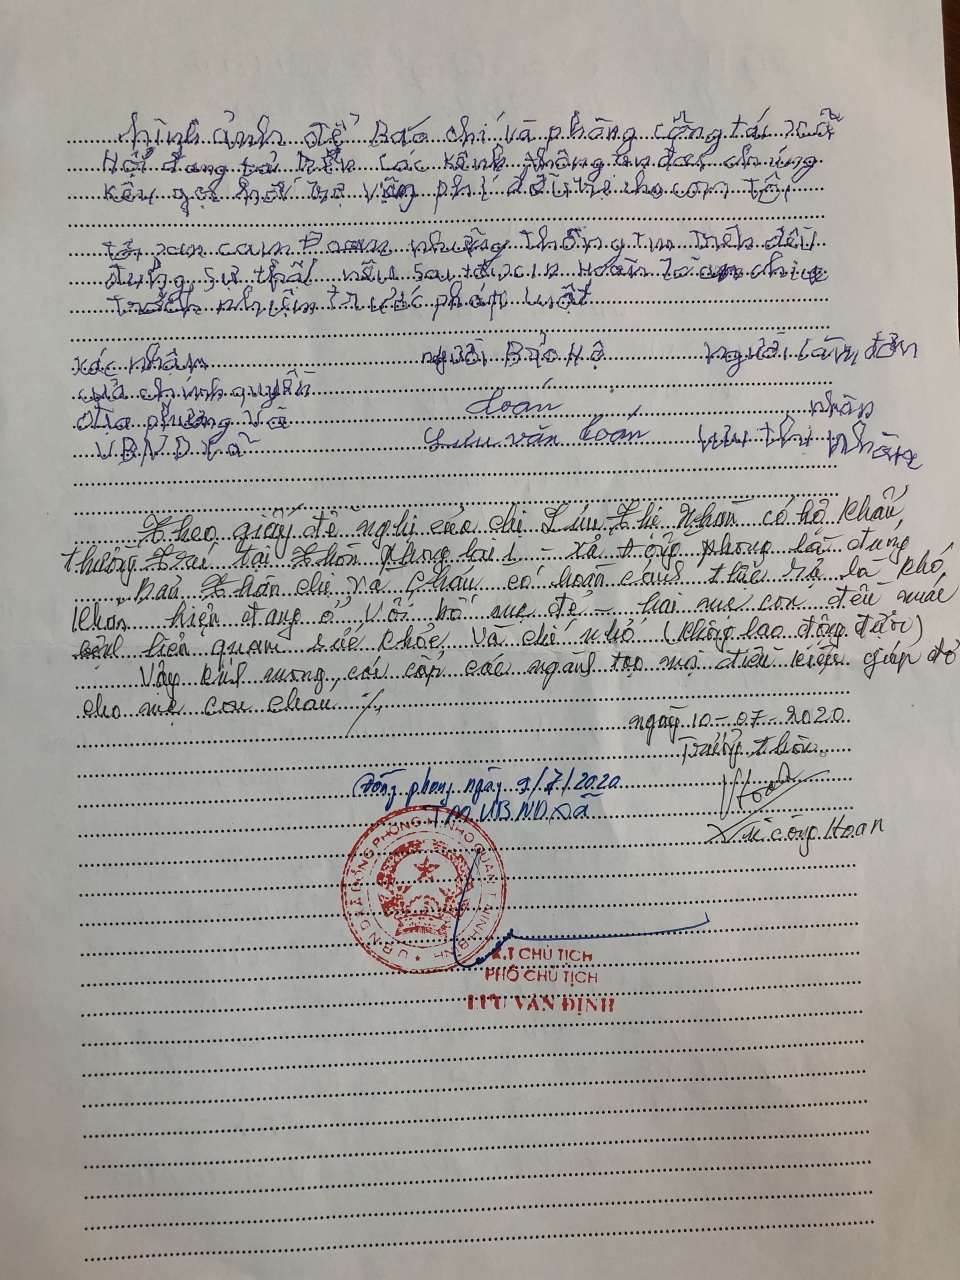 hình ảnh để Báo chí và phòng công tác xã
Hội đăng tải trên các kênh thông tin đại chúng
kêu gọi hỗ trợ viện phí điều trị cho con tôi,
tôi xin cam Đoan những thông tin trên đều
đúng sự thật nếu sai tôi xin Hoàn toàn chịu
trách nhiệm trước pháp luật
xác nhận
của chính quyền
địa phương và
UBND xã
người Bảo Hộ
toán
Lưu văn toán
người làm đơn
nhàn
Lưu thị Nhàn
Theo giấy đề nghị của chị Lưu Thị Nhàn có hộ khẩu
thường trú tại Thôn phong lai 1 - xã Đồng phong là đúng
Bản Thân chị và cháu có hoàn cảnh thực sự là khó
khăn hiện đang ở với bố mẹ đẻ - hai mẹ con đều mắc
bệnh liên quan sức khỏe và chế nhỏ (không lao động được)
Vậy kính mong các cấp các ngành tạo mọi điều kiện giúp đỡ
cho mẹ con cháu ./.
ngày 10-07-2020
Trưởng thôn
Hoan
công Hoan
Đồng phong ngày 9/7/2020
TM UBND xã
U.B.N.D XÃ ĐỒNG PHONG H. NHO QUAN T. NINH BÌNH
K.T CHỦ TỊCH
PHÓ CHỦ TỊCH
LƯU VĂN ĐỊNH